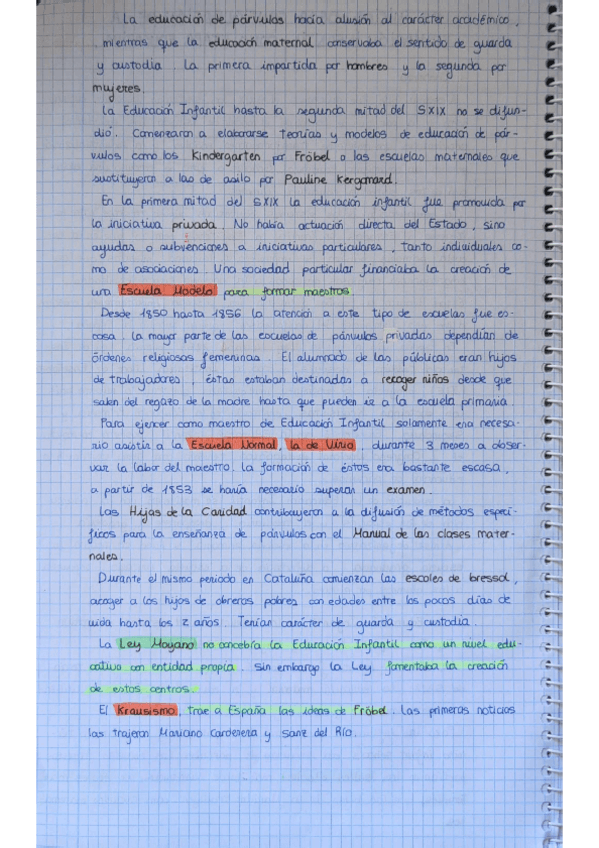 La educación de párvulos hacía alusión al carácter académico,
mientras que la educación maternal conservaba el sentido de guarda
y custodia. La primera impartida por hombres y la segunda por
mujeres.
La Educación Infantil hasta la segunda mitad del SXIX no se difun-
dió. Comenzaron a elaborarse teorías y modelos de educación de pár-
vulos como los Kindergarten por Fröbel o las escuelas maternales que
sustituyeron a las de asilo por Pauline Kergomard.
En la primera mitad del SXIX la educación infantil fue promovida por
la iniciativa privada. No había actuación directa del Estado, sino
ayudas o subvenciones a iniciativas particulares, tanto individuales co-
mo de asociaciones. Una sociedad particular financiaba la creación de
una Escuela Modelo para formar maestros.
Desde 1850 hasta 1856 la atención a este tipo de escuelas fue es-
casa. La mayor parte de las escuelas de párvulos privadas dependían de
órdenes religiosas femeninas. El alumnado de las públicas eran hijos
de trabajadores, éstas estaban destinadas a recoger niños desde que
salen del regazo de la madre hasta que pueden ir a la escuela primaria.
Para ejercer como maestro de Educación Infantil solamente era necesa-
rio asistir a la Escuela Normal, la de Virio, durante 3 meses a obser-
var la labor del maestro. La formación de éstos era bastante escasa,
a partir de 1853 se haría necesario superar un examen.
Las Hijas de la Caridad contribuyeron a la difusión de métodos especí-
ficos para la enseñanza de párvulos con el Manual de las clases mater-
nales.
Durante el mismo periodo en Cataluña comienzan las escoles de bressol,
acoger a los hijos de obreras pobres con edades entre los pocos días de
vida hasta los 2 años. Tenían carácter de guarda y custodia.
La Ley Moyano no concebría la Educación Infantil como un nivel edu-
cativo con entidad propia. Sin embargo la Ley fomentaba la creación
de estos centros.
El Krausismo, trae a España las ideas de Fröbel. Las primeras noticias
las trajeron Mariano Carderera y Sanz del Río.